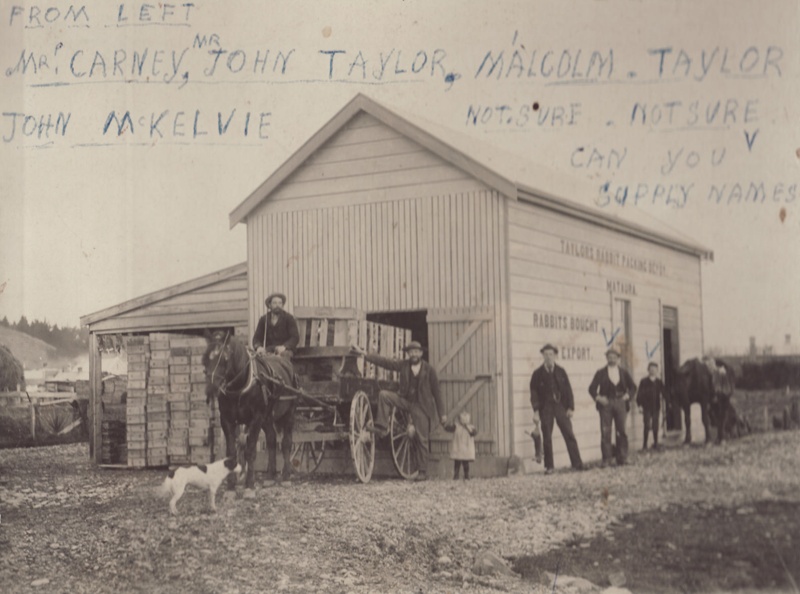 FROM LEFT
Mr. CARNEY, MR JOHN TAYLOR, MALCOLM. TAYLOR
JOHN McKELVIE NOT.SURE. NOT SURE
CAN YOU
SUPPLY NAMES
TAYLORS RABBIT PACKING DEPOT.
MATAURA.
RABBITS BOUGHT
EXPORT.